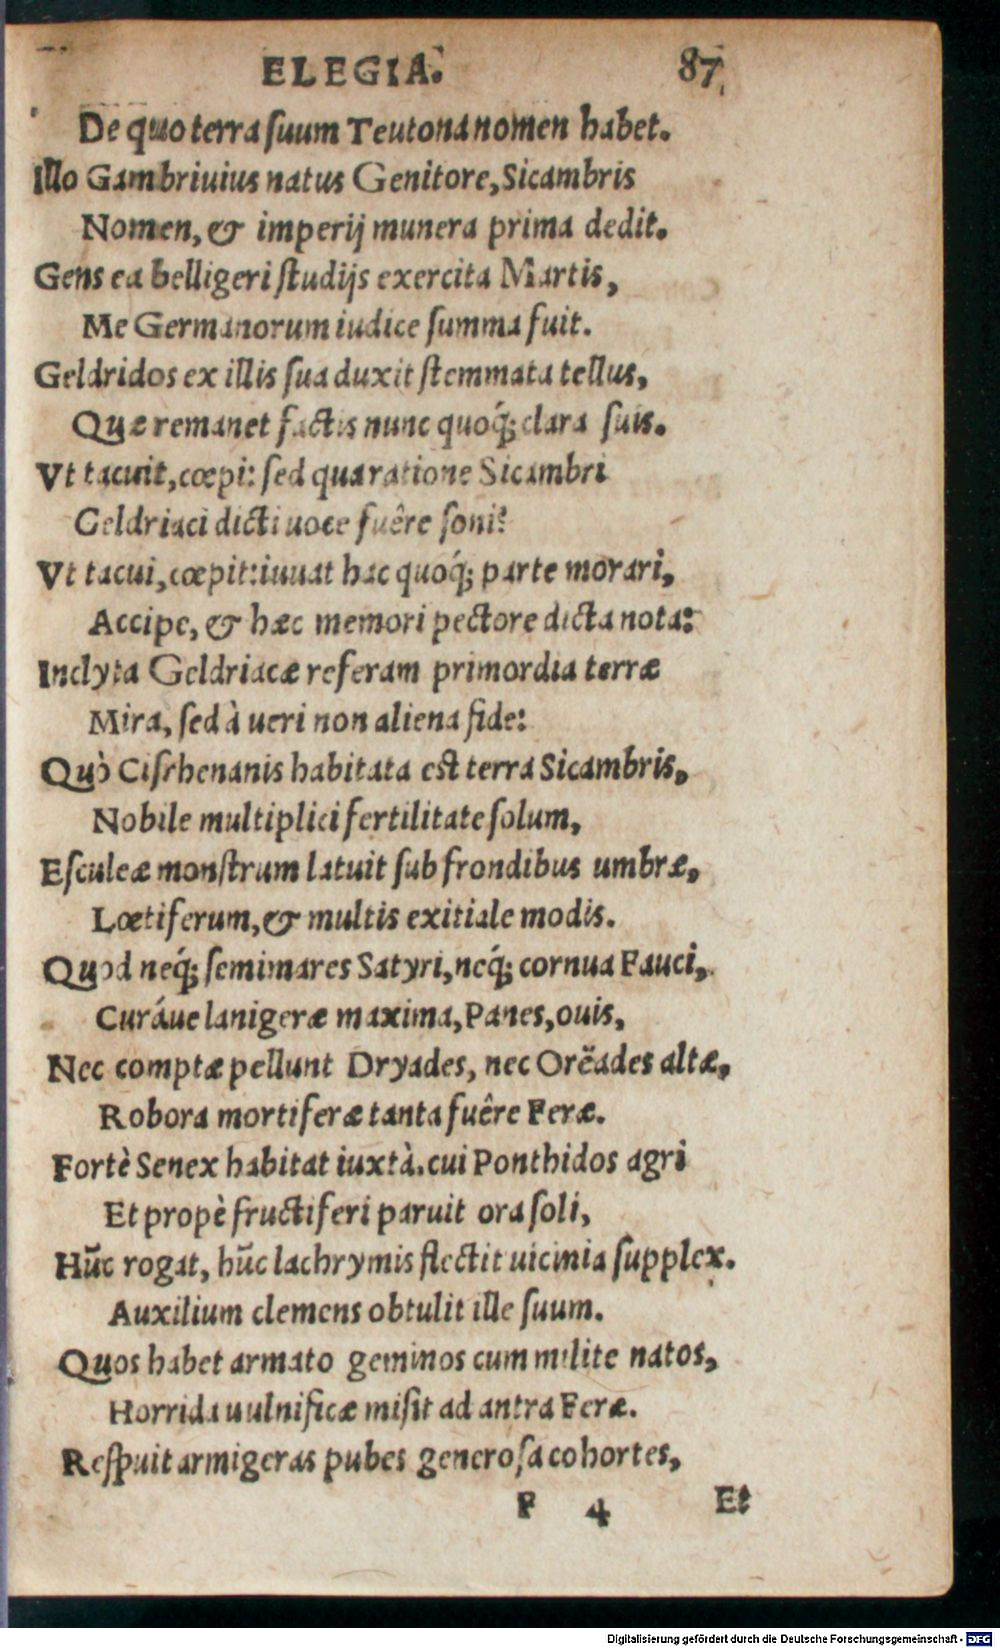 ELEGIA. 87
De quo terra ſuum Teutona nomen habet.
Illo Gambriuius natus Genitore, Sicambris
Nomen, & imperij munera prima dedit.
Gens ea belligeri ſtudijs exercita Martis,
Me Germanorum iudice ſumma fuit.
Geldridos ex illis ſua duxit ſtemmata tellus,
Quæ remanet factis nunc quoq́; clara ſuis.
Vt tacuit, cœpi: ſed qua ratione Sicambri
Geldriaci dicti uoce fuêre ſoni?
Vt tacui, cœpit: iuuat hac quoq́; parte morari,
Accipe, & hæc memori pectore dicta nota:
Inclyta Geldriacæ referam primordia terræ
Mira, ſed à ueri non aliena fide:
Quò Ciſrhenanis habitata eſt terra Sicambris,
Nobile multiplici fertilitate ſolum,
Eſculeæ monſtrum latuit ſub frondibus umbræ,
Lœtiferum, & multis exitiale modis.
Quod neq́; ſemimares Satyri, neq́; cornua Fauci,
Curáue lanigeræ maxima, Panes, ouis,
Nec comptæ pellunt Dryades, nec Orëades altæ,
Robora mortiferæ tanta fuêre Feræ.
Fortè Senex habitat iuxtà. cui Ponthidos agri
Et propè fructiferi paruit ora ſoli,
Hūc rogat, hūc lachrymis flectit uicinia ſupplex.
Auxilium clemens obtulit ille ſuum.
Quos habet armato geminos cum milite natos,
Horrida uulnificæ miſit ad antra Feræ.
Reſpuit armigeras pubes generoſa cohortes,
F 4 Et
Digitalisierung gefördert durch die Deutsche Forschungsgemeinschaft - DFG